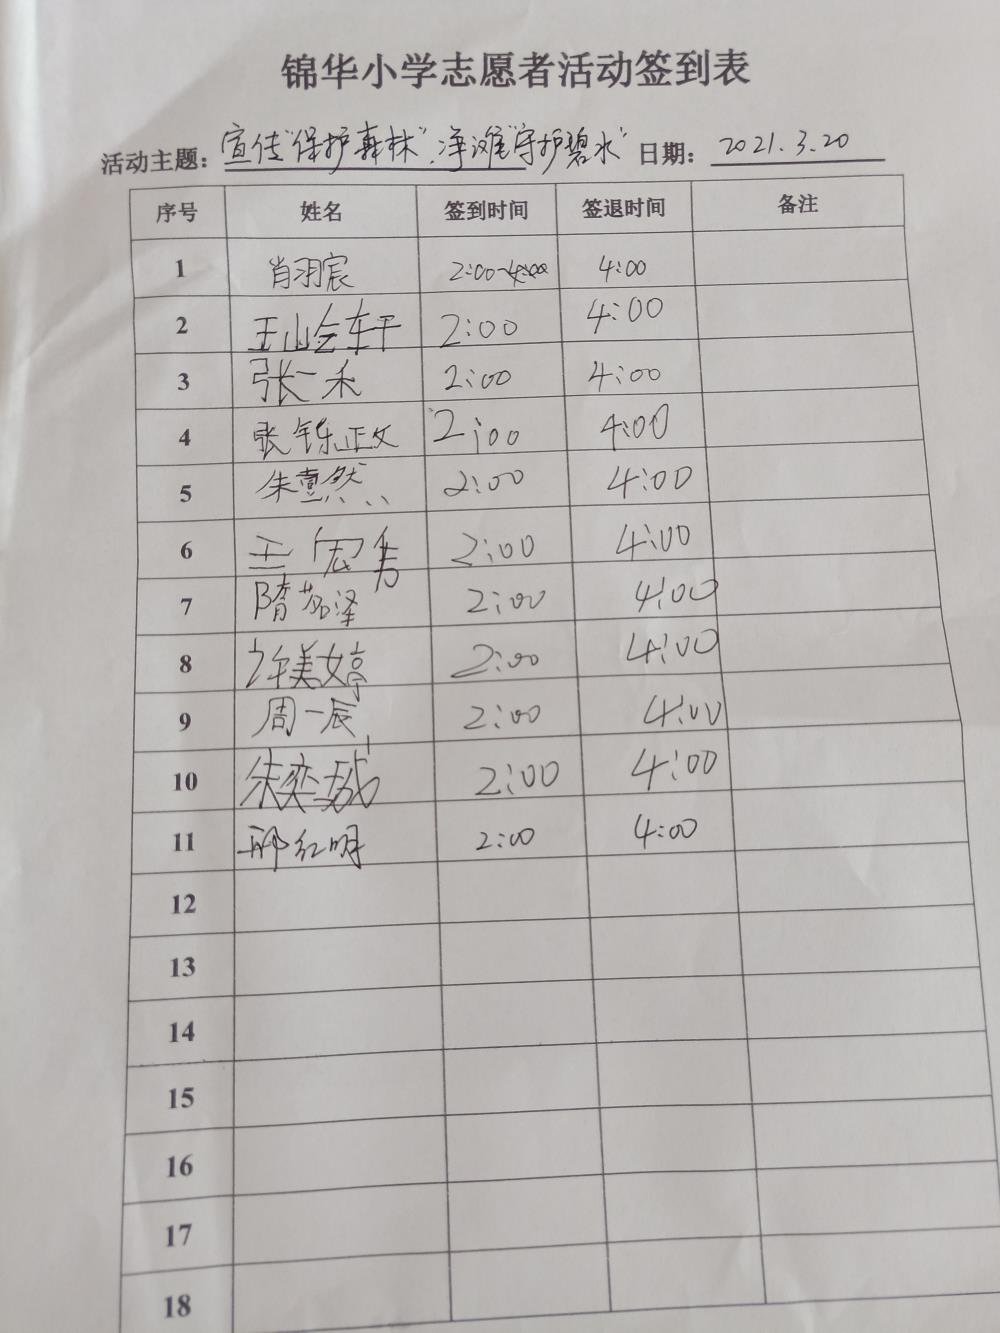 锦华小学志愿者活动签到表
活动主题：宣传"保护森林"、净滩"守护碧水" 日期：2021.3.20
序号 姓名 签到时间 签退时间 备注
1 肖羽宸 2:00 4:00
2 2:00 4:00
3 张一禾 2:00 4:00
4 张铄政文 2:00 4:00
5 朱熹然 2:00 4:00
6 王宏隽 2:00 4:00
7 隋茗泽 2:00 4:00
8 美婷 2:00 4:00
9 周一辰 2:00 4:00
10 朱奕 2:00 4:00
11 邢红明 2:00 4:00
12
13
14
15
16
17
18